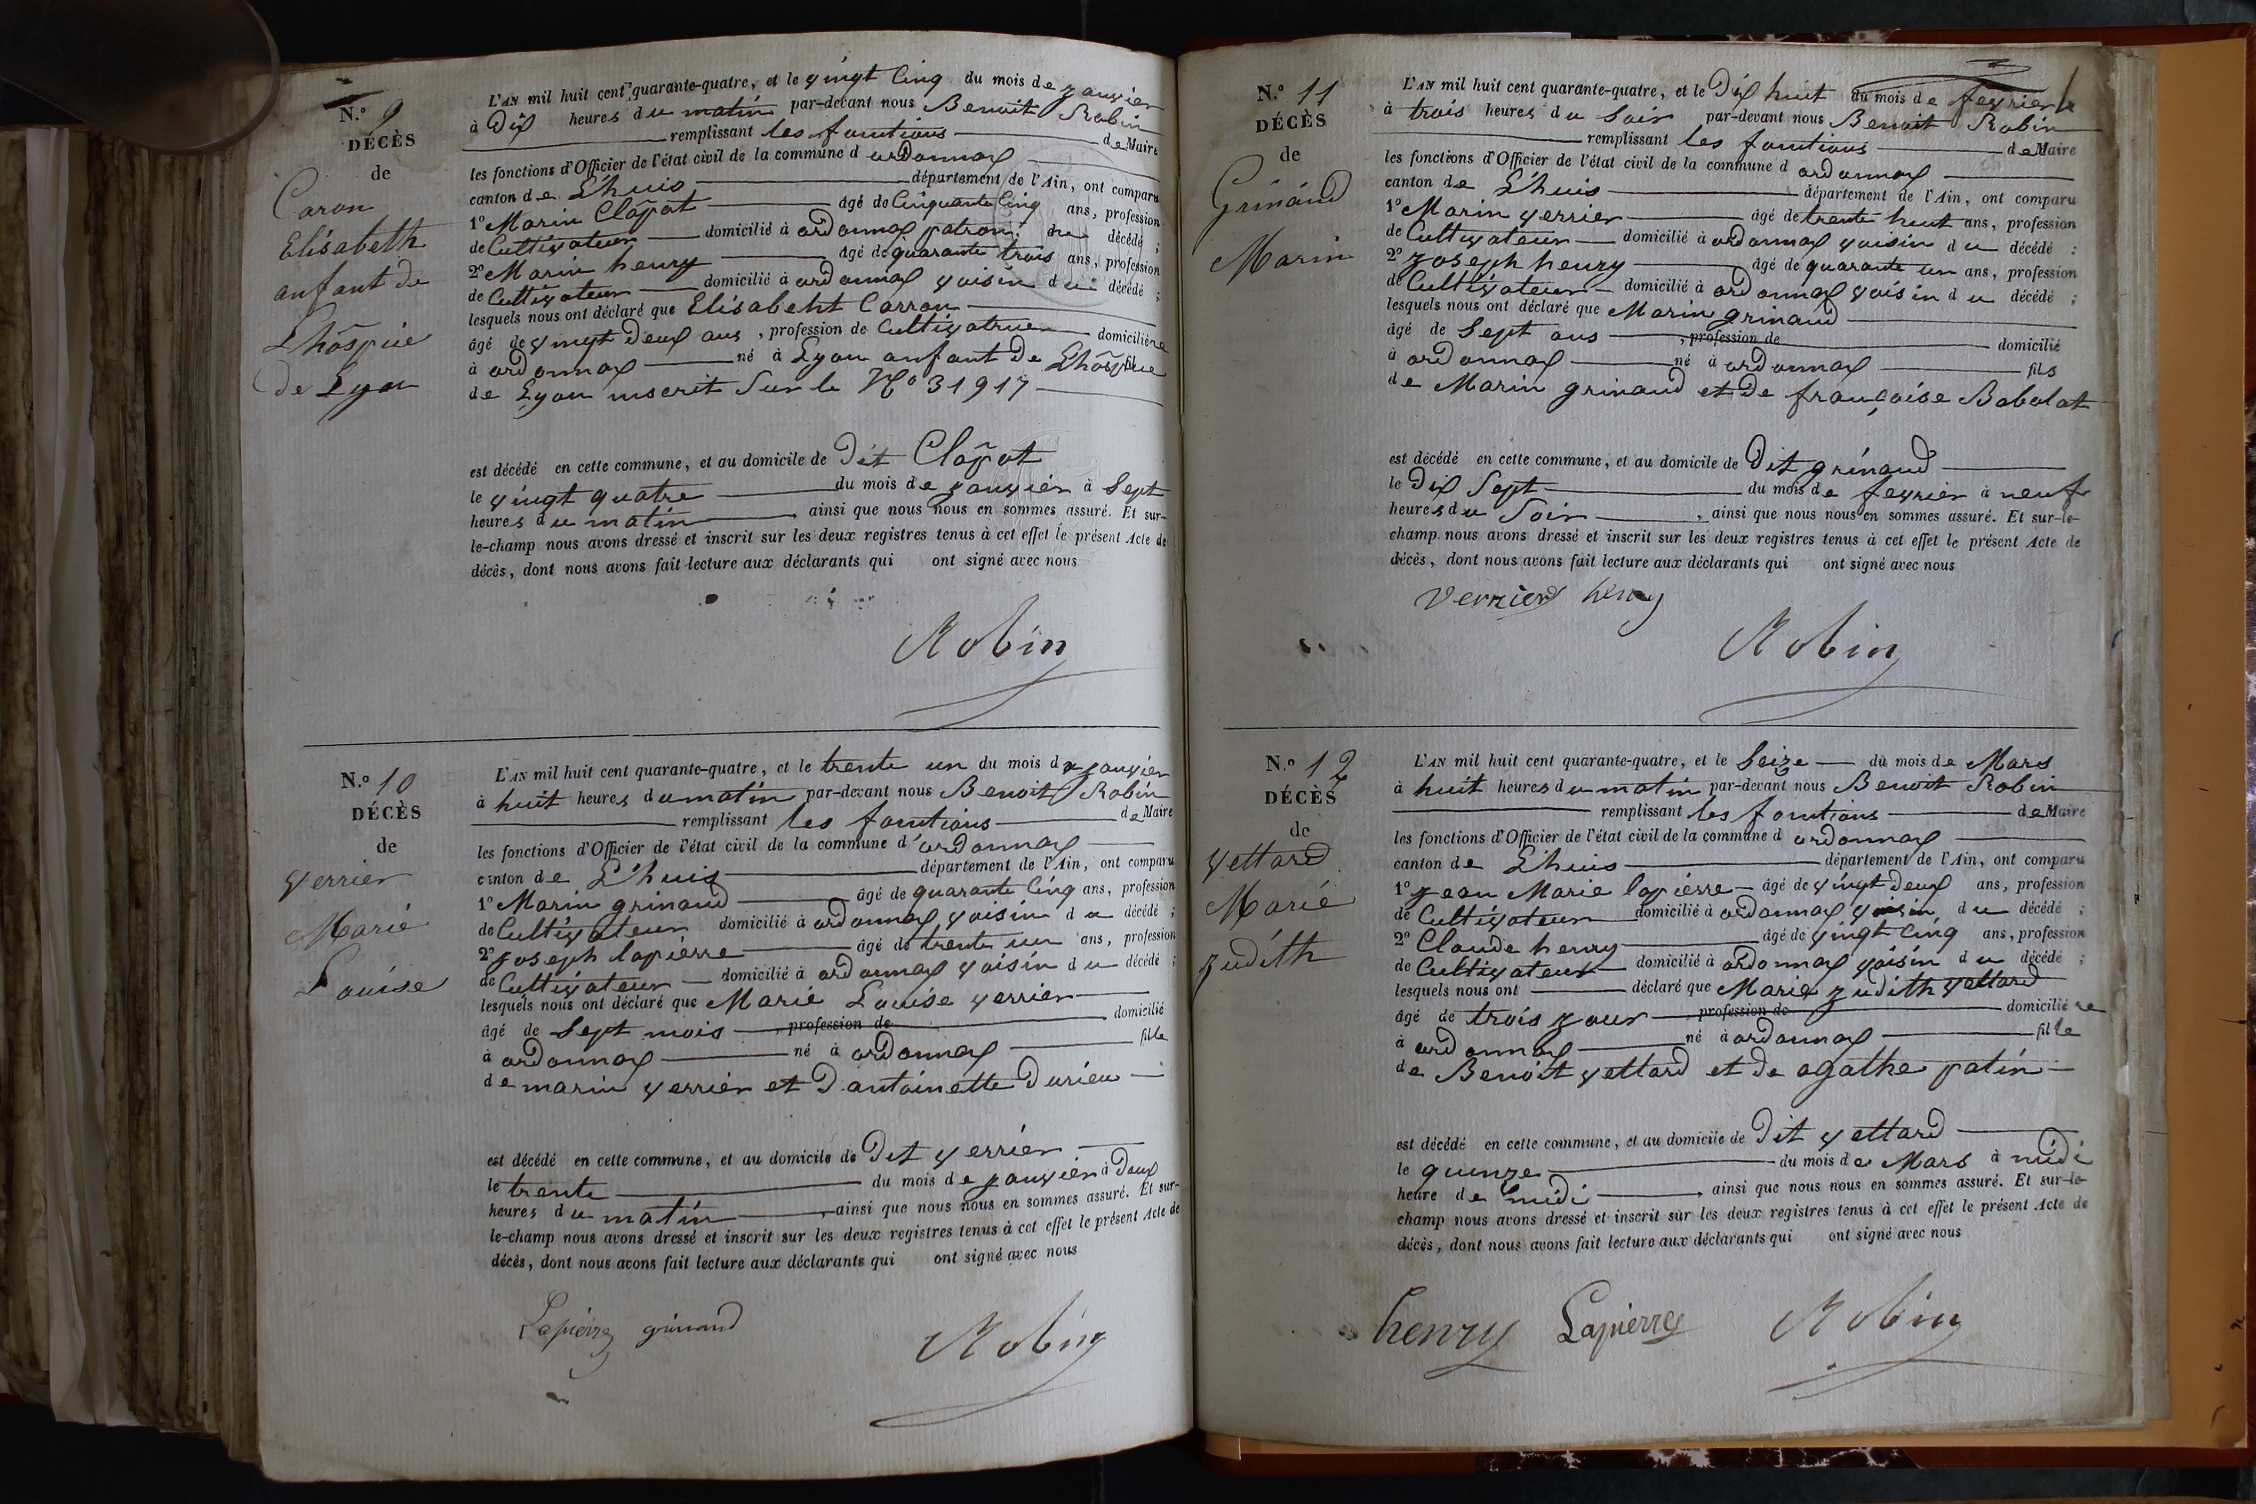 N.º 9
DÉCÈS
de
Caron
Elisabeth
anfant de
L'hôspice
de Lyon
L'AN mil huit cent quarante-quatre, et le vingt Cinq du mois de janvier
à Dix heures du matin par-devant nous Benoit Robin
remplissant les fonctions de Maire
les fonctions d'Officier de l'état civil de la commune d ordonnax
canton de L'huis département de l'Ain, ont comparu
1º Marin Clâpot âgé de Cinquante Cinq ans, profession
de Cultivateur domicilié à ordonnax patron du décédé ;
2º Marin henry âgé de quarante trois ans, profession
de Cultivateur domicilié à ordonnax voisin du décédé ;
lesquels nous ont déclaré que Elisabeht Carron
âgé de vingt deux ans, profession de Cultivatrice domiciliére
à ordonnax né à Lyon anfant de L'hôspice
de Lyon inscrit Sur le Nº 31917
est décédé en cette commune, et au domicile de Dit Clâpot
le vingt quatre du mois de janvier à Sept
heures du matin, ainsi que nous nous en sommes assuré. Et sur-
le-champ nous avons dressé et inscrit sur les deux registres tenus à cet effet le présent Acte de
décès, dont nous avons fait lecture aux déclarants qui ont signé avec nous
Robin
N.º 10
DÉCÈS
de
verrier
Marie
Louise
L'AN mil huit cent quarante-quatre, et le trente un du mois de janvier
à huit heures du matin par-devant nous Benoit Robin
remplissant les fonctions de Maire
les fonctions d'Officier de l'état civil de la commune d'ordonnax
canton de L'huis département de l'Ain, ont comparu
1º Marin grinand âgé de quarante Cinq ans, profession
de Cultivateur domicilié à ordonnax voisin du décédé ;
2º joseph lapierre âgé de trente un ans, profession
de Cultivateur domicilié à ordonnax voisin du décédé ;
lesquels nous ont déclaré que Marie Louise verrier
âgé de Sept mois, profession de domicilié
à ordonnax né à ordonnax fille
de marin verrier et D'antoinette Durieu
est décédé en cette commune, et au domicile de Dit verrier
le trente du mois de janvier à Deux
heures du matin, ainsi que nous nous en sommes assuré. Et sur-
le-champ nous avons dressé et inscrit sur les deux registres tenus à cet effet le présent Acte de
décès, dont nous avons fait lecture aux déclarants qui ont signé avec nous
Lapierre grinand
Robin
N.º 11
DÉCÈS
de
Grinand
Marin
L'AN mil huit cent quarante-quatre, et le Dix huit du mois de fevrier
à trois heures du Soir par-devant nous Benoit Robin
remplissant les fonctions de Maire
les fonctions d'Officier de l'état civil de la commune d ordonnax
canton de L'huis département de l'Ain, ont comparu
1º Marin verrier âgé de trente huit ans, profession
de Cultivateur domicilié à ordonnax voisin du décédé :
2º joseph henry âgé de quarante un ans, profession
de Cultivateur domicilié à ordonnax voisin du décédé ;
lesquels nous ont déclaré que Marin grinand
âgé de Sept ans, profession de domicilié
à ordonnax né à ordonnax fils
de Marin grinand et de françoise Babolat
est décédé en cette commune, et au domicile de Dit grinand
le Dix Sept du mois de fevrier à neuf
heures du Soir, ainsi que nous nous en sommes assuré. Et sur-le-
champ nous avons dressé et inscrit sur les deux registres tenus à cet effet le présent Acte de
décès, dont nous avons fait lecture aux déclarants qui ont signé avec nous
verrier henry
Robin
N.º 12
DÉCÈS
de
vettard
Marie
judith
L'AN mil huit cent quarante-quatre, et le Seize du mois de Mars
à huit heures du matin par-devant nous Benoit Robin
remplissant les fonctions de Maire
les fonctions d'Officier de l'état civil de la commune d ordonnax
canton de L'huis département de l'Ain, ont comparu
1º jean Marie lapierre âgé de vingt deux ans, profession
de Cultivateur domicilié à ordonnax voisin du décédé ;
2º Claude henry âgé de vingt Cinq ans, profession
de Cultivateur domicilié à ordonnax voisin du décédé ;
lesquels nous ont déclaré que Marie judith vettard
âgé de trois jour, profession de domiciliére
à ordonnax né à ordonnax fille
de Benoit vettard et de agathe patin
est décédé en cette commune, et au domicile de Dit vettard
le quinze du mois de Mars à midi
heure de midi, ainsi que nous nous en sommes assuré. Et sur-le-
champ nous avons dressé et inscrit sur les deux registres tenus à cet effet le présent Acte de
décès, dont nous avons fait lecture aux déclarants qui ont signé avec nous
henry Lapierre Robin